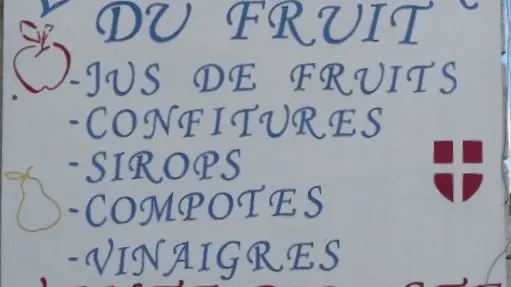 DU FRUIT
-JUS DE FRUITS
-CONFITURES
-SIROPS
-COMPOTES
-VINAIGRES